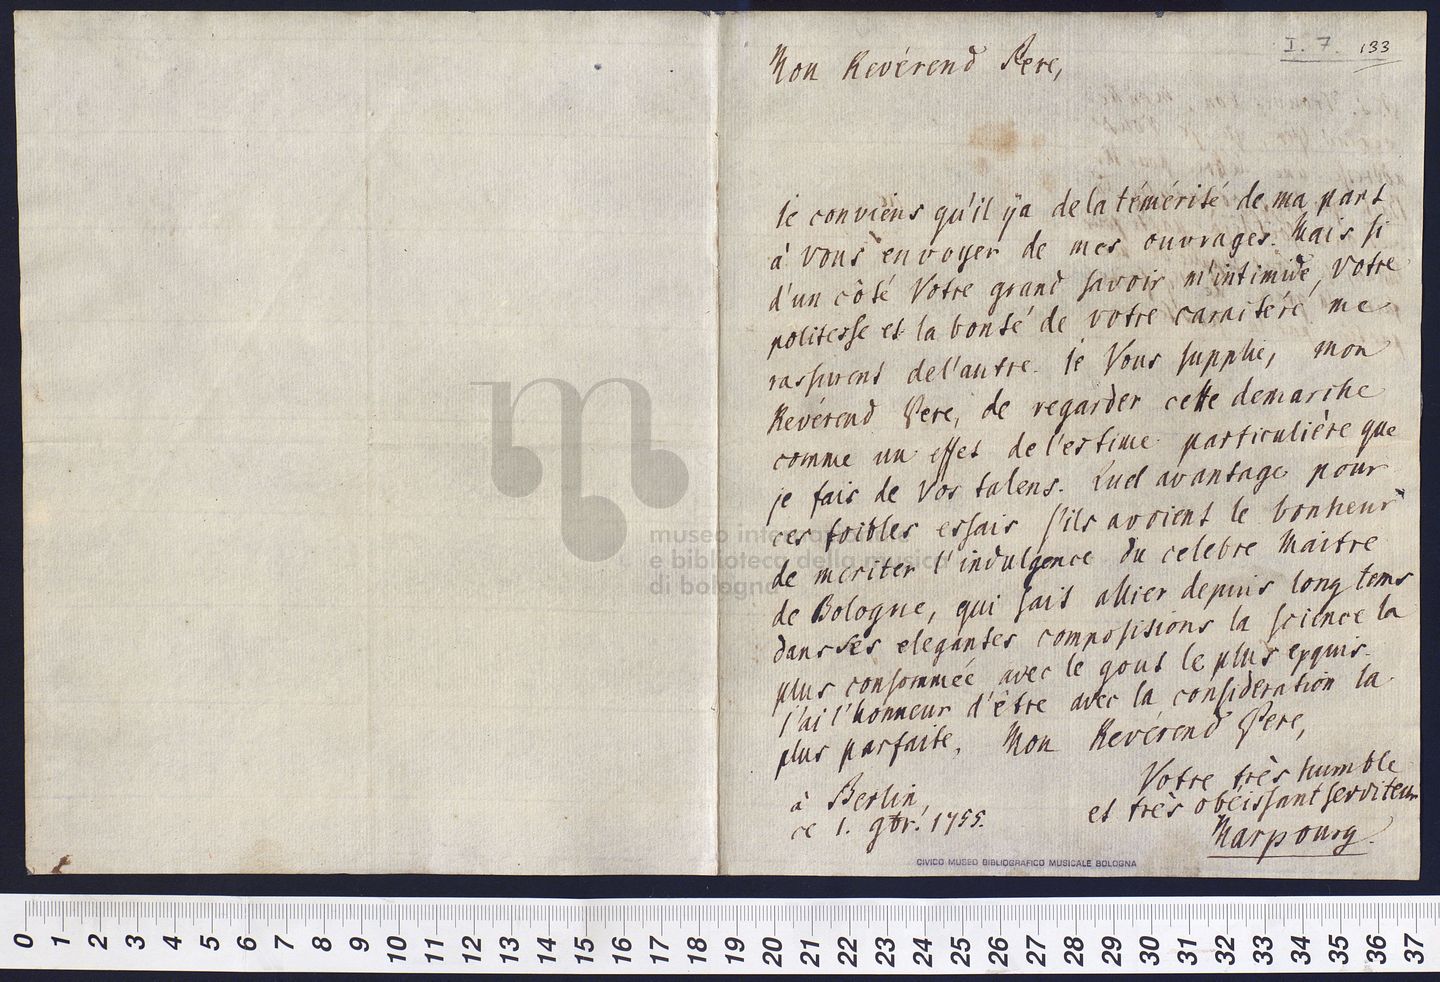 I. 7. 133
Mon Revérend Pere,
Je conviens qu'il ÿa de la témérité de ma part
à Vous envoyer de mes ouvrages. Mais si
d'un côté Votre grand savoir m'intimide, Votre
politesse et la bonté de votre caractére me
rassurent de l'autre. Je Vous supplie, mon
Revérend Pere, de regarder cette demarche
comme un effet de l'estime particulière que
je fais de Vos talens. Quel avantage pour
ces foibles essais s'ils avoient le bonheur
de meriter l'indulgence du celebre Maitre
de Bologne, qui sait allier depuis long tems
dans ses elegantes compositions la science la
plus consommée avec le gout le plus exquis.
J'ai l'honneur d'être avec la consideration la
plus parfaite, Mon Revérend Pere,
Votre très humble
et très obéissant serviteur
Marpourg.
à Berlin,
ce 1. 9br. 1755.
CIVICO MUSEO BIBLIOGRAFICO MUSICALE BOLOGNA
museo internazionale
e biblioteca della musica
di bologna
0 1 2 3 4 5 6 7 8 9 10 11 12 13 14 15 16 17 18 19 20 21 22 23 24 25 26 27 28 29 30 31 32 33 34 35 36 37